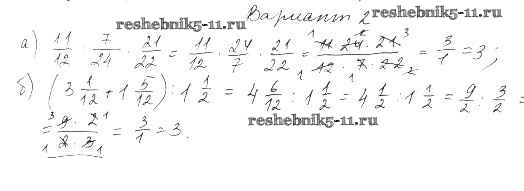 reshebnik5-11.ru
Вариант 2
reshebnik5-11.ru
а) 11/12 : 7/24 · 21/22 = 11/12 · 24/7 · 21/22 = 11 · 24 · 21 / 12 · 7 · 22 = 3/1 = 3;
б) (3 1/12 + 1 5/12) : 1 1/2 = 4 6/12 : 1 1/2 = 4 1/2 : 1 1/2 = 9/2 : 3/2 =
= 9 · 2 / 2 · 3 = 3/1 = 3.
reshebnik5-11.ru